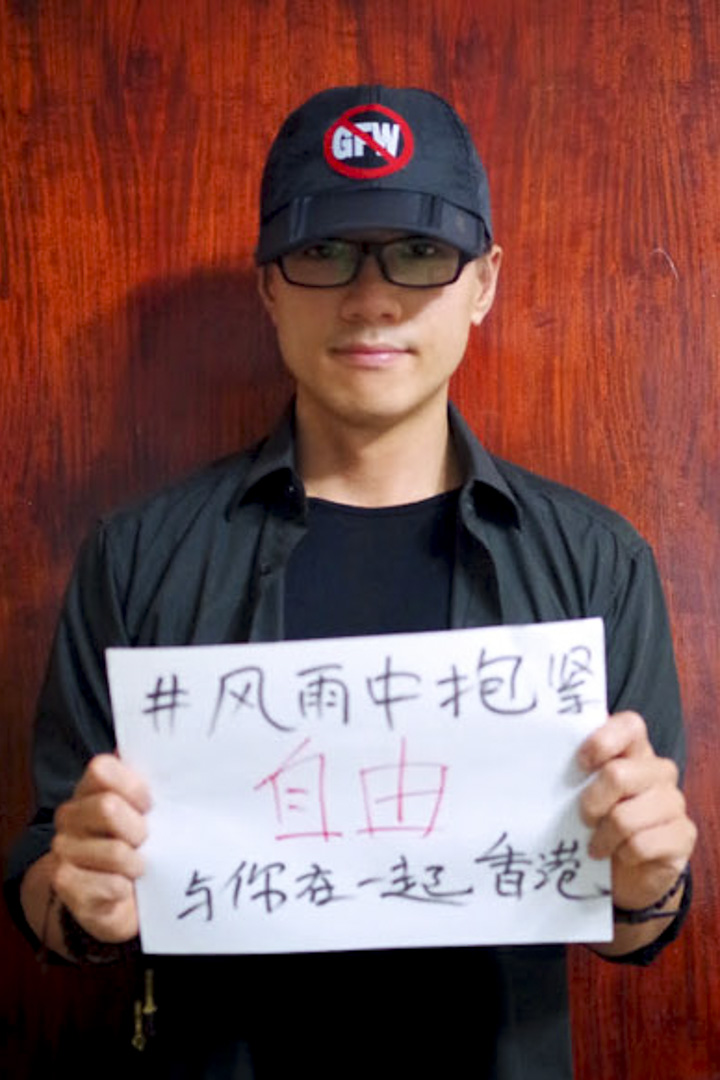 GFW
#风雨中抱紧
自由
与你在一起香港